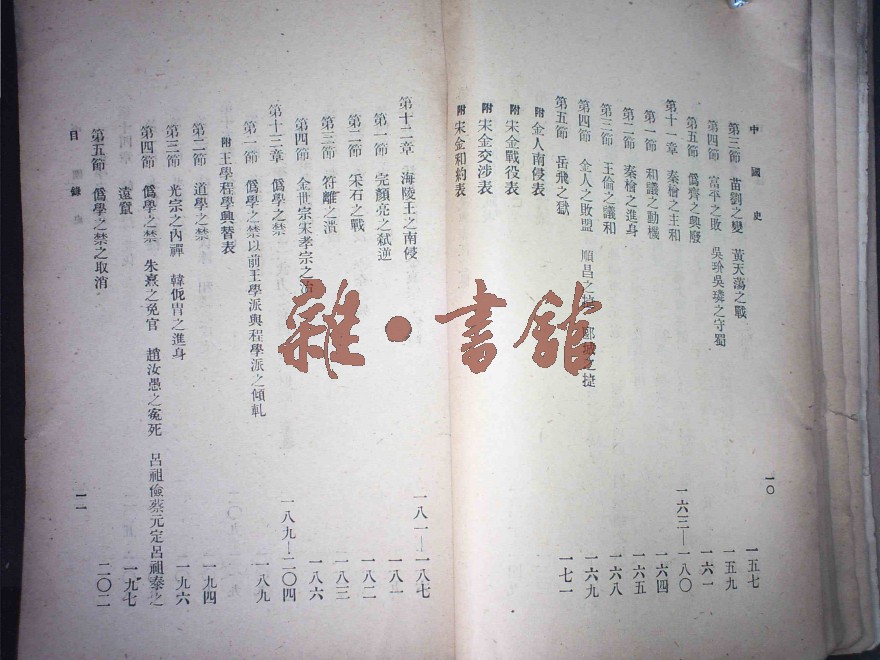 中國史
第三節 苗劉之變 黃天蕩之戰 一五七
第四節 富平之敗 吳玠吳璘之守蜀 一五九
第五節 僞齊之興廢 一六一
第十一章 秦檜之主和 一六三—一八〇
第一節 和議之動機 一六四
第二節 秦檜之進身 一六五
第三節 王倫之議和 一六八
第四節 金人之敗盟 順昌之捷 郾城之捷 一六九
第五節 岳飛之獄 一七一
附 金人南侵表
附 宋金戰役表
附 宋金交涉表
附 宋金和約表
一〇
第十二章 海陵王之南侵 一八一—一八七
第一節 完顏亮之弒逆 一八一
第二節 采石之戰 一八二
第三節 符離之潰 一八三
第四節 金世宗宋孝宗之治 一八六
第十三章 僞學之禁 一八九—二〇四
第一節 僞學之禁以前王學派與程學派之傾軋 一八九
附 王學程學興替表
第二節 道學之禁 一九四
第三節 光宗之內禪 韓侂冑之進身 一九六
第四節 僞學之禁 朱熹之免官 趙汝愚之寃死 呂祖儉蔡元定呂祖泰之
遠竄 一九七
第五節 僞學之禁之取消 二〇二
目錄 一一
雜·書館